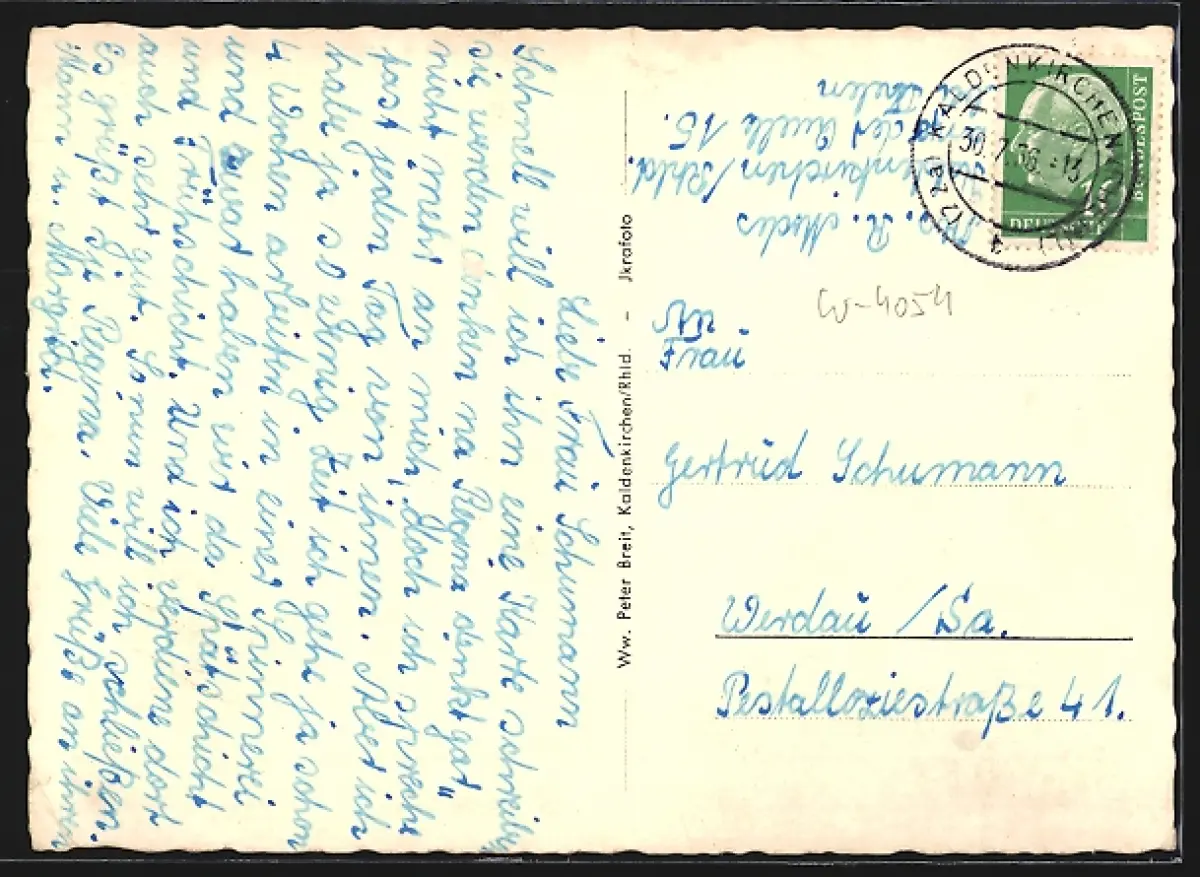 Liebe Frau Schumann
Schnell will ich ihn eine Karte schreiben
sie werden denken na Regina denkt gar
nicht mehr an mich, doch ich spreche
fast jeden Tag von ihnen. Aber ich
habe ja so wenig Zeit ich gehe ja schon
4 Wochen arbeiten in einer Spinnerei
und zwar haben wir da Spätschicht
und Frühschicht. Und ich verdiene dort
auch sehr gut. So nun will ich schließen.
Es grüßt Ihr Regina. Viele Grüße an ihren
Mann u. Margitta.
Ww. Peter Breit, Kaldenkirchen/Rhld. - Jkrafoto
R. Modes
Kaldenkirchen/Rhld.
der Quelle 15.
bei Thelen
(22a) KALDENKIRCHEN
30.7.56.-13
DEUTSCHE
BUNDESPOST
10
W-4054
An
Frau
Gertrud Schumann
Werdau /Sa.
Pestalloziestraße 41.